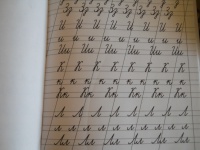 Зз Зз Зз Зз Зз Зз Зз
И И И И И И И
и и и и и и и
Ии Ии Ии Ии Ии Ии
К К К К К К К
к к к к к к к
Кк Кк Кк Кк Кк Кк
Л Л Л Л Л Л Л
л л л л л л л
Лл Лл Лл Лл Лл Лл